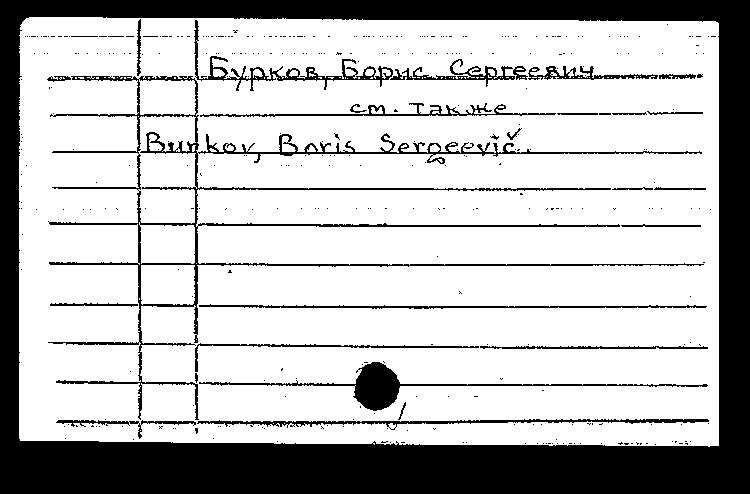 Бурков, Борис Сергеевич
см. также
Burkov, Boris Sergeevič.